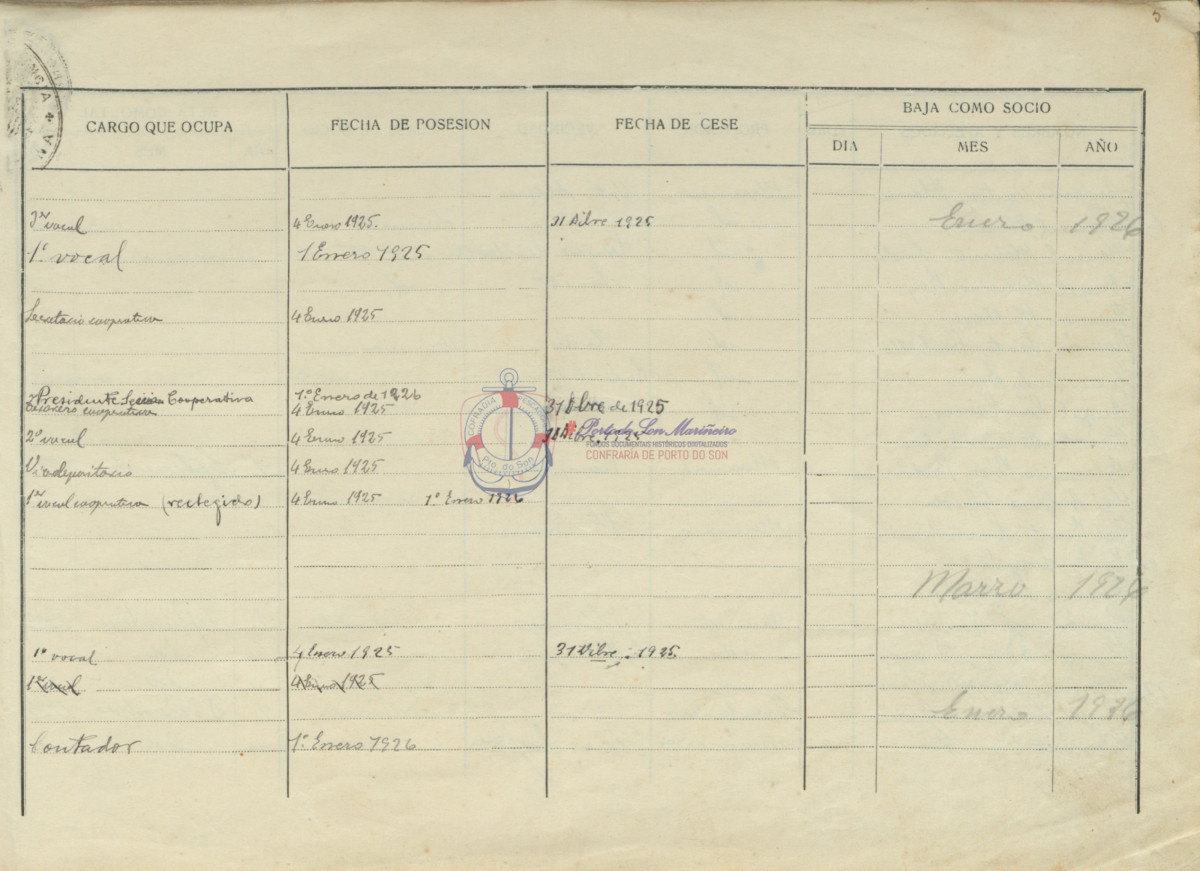 5
CARGO QUE OCUPA FECHA DE POSESION FECHA DE CESE BAJA COMO SOCIO
DIA MES AÑO
3er vocal 4 Enero 1925. 31 Dibre 1925 Enero 1926
1º vocal 1 Enero 1925
Secretario cooperativa 4 Enero 1925
Presidente Sección Cooperativa 1º Enero de 1926
Tesorero cooperativa 4 Enero 1925 31 Dbre de 1925
2º vocal 4 Enero 1925 31 Dibre 1925
Vicedepositario 4 Enero 1925
1er vocal cooperativa (reelegido) 4 Enero 1925 1º Enero 1926
Marzo 1926
1º vocal 4 Enero 1925 31 Dibre. 1925
1er vocal 4 Enero 1925
Enero 1926
Contador 1º Enero 1926
COFRADIA PESCADORES
Pto. do Son
Porto do Son Mariñeiro
FONDOS DOCUMENTAIS HISTÓRICOS DIXITALIZADOS
CONFRARÍA DE PORTO DO SON